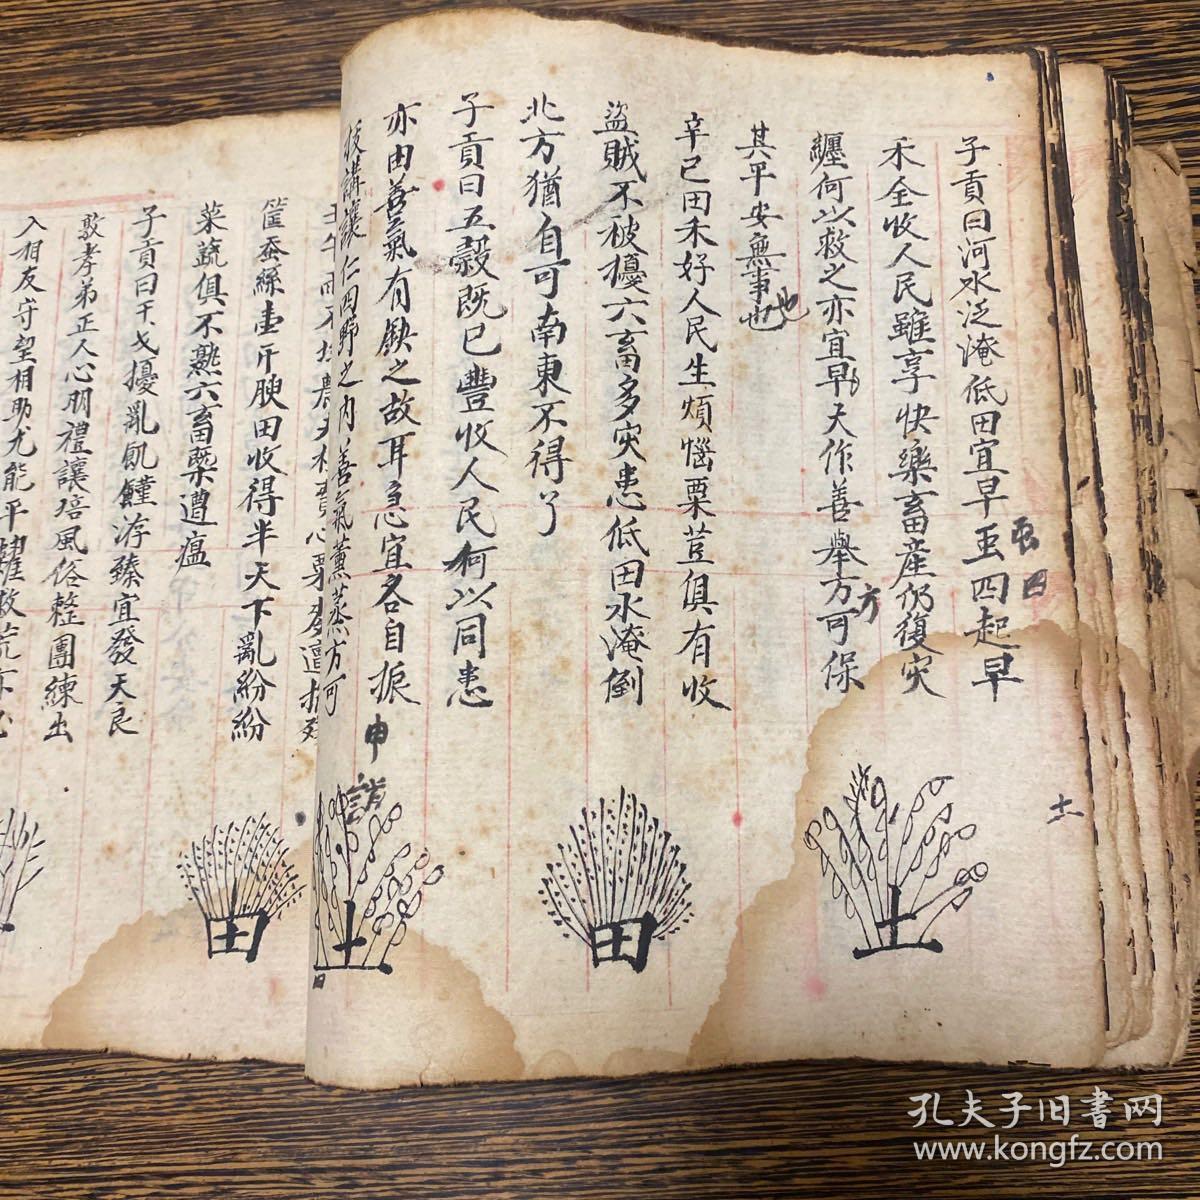 子貢曰河水泛淹低田宜早蚕四起早
蚕四
禾全收人民雖享快樂畜産仍復灾
纏何以救之亦宜早夫作善舉方可保
方
其平安無事也
也
辛已田禾好人民生煩惱粟荳俱有收
盜賊不被擾六畜多灾患低田水淹倒
北方猶自可南東不得了
子貢曰五穀既已豐收人民何以同患
亦由善氣有缺之故耳急宜各自振
申講
捘講讓仁四野之内善氣薰蒸方可
筐蚕絲壹斤腴田收得半天下亂紛紛
菜蔬俱不熟六畜槩遭瘟
子貢曰干戈擾亂飢饉洊臻宜發天良
敦孝弟正人心明禮讓培風俗整團練出
入相友守望相助尤能平糶救荒
十一
土
田
土
田
孔夫子旧書网
www.kongfz.com